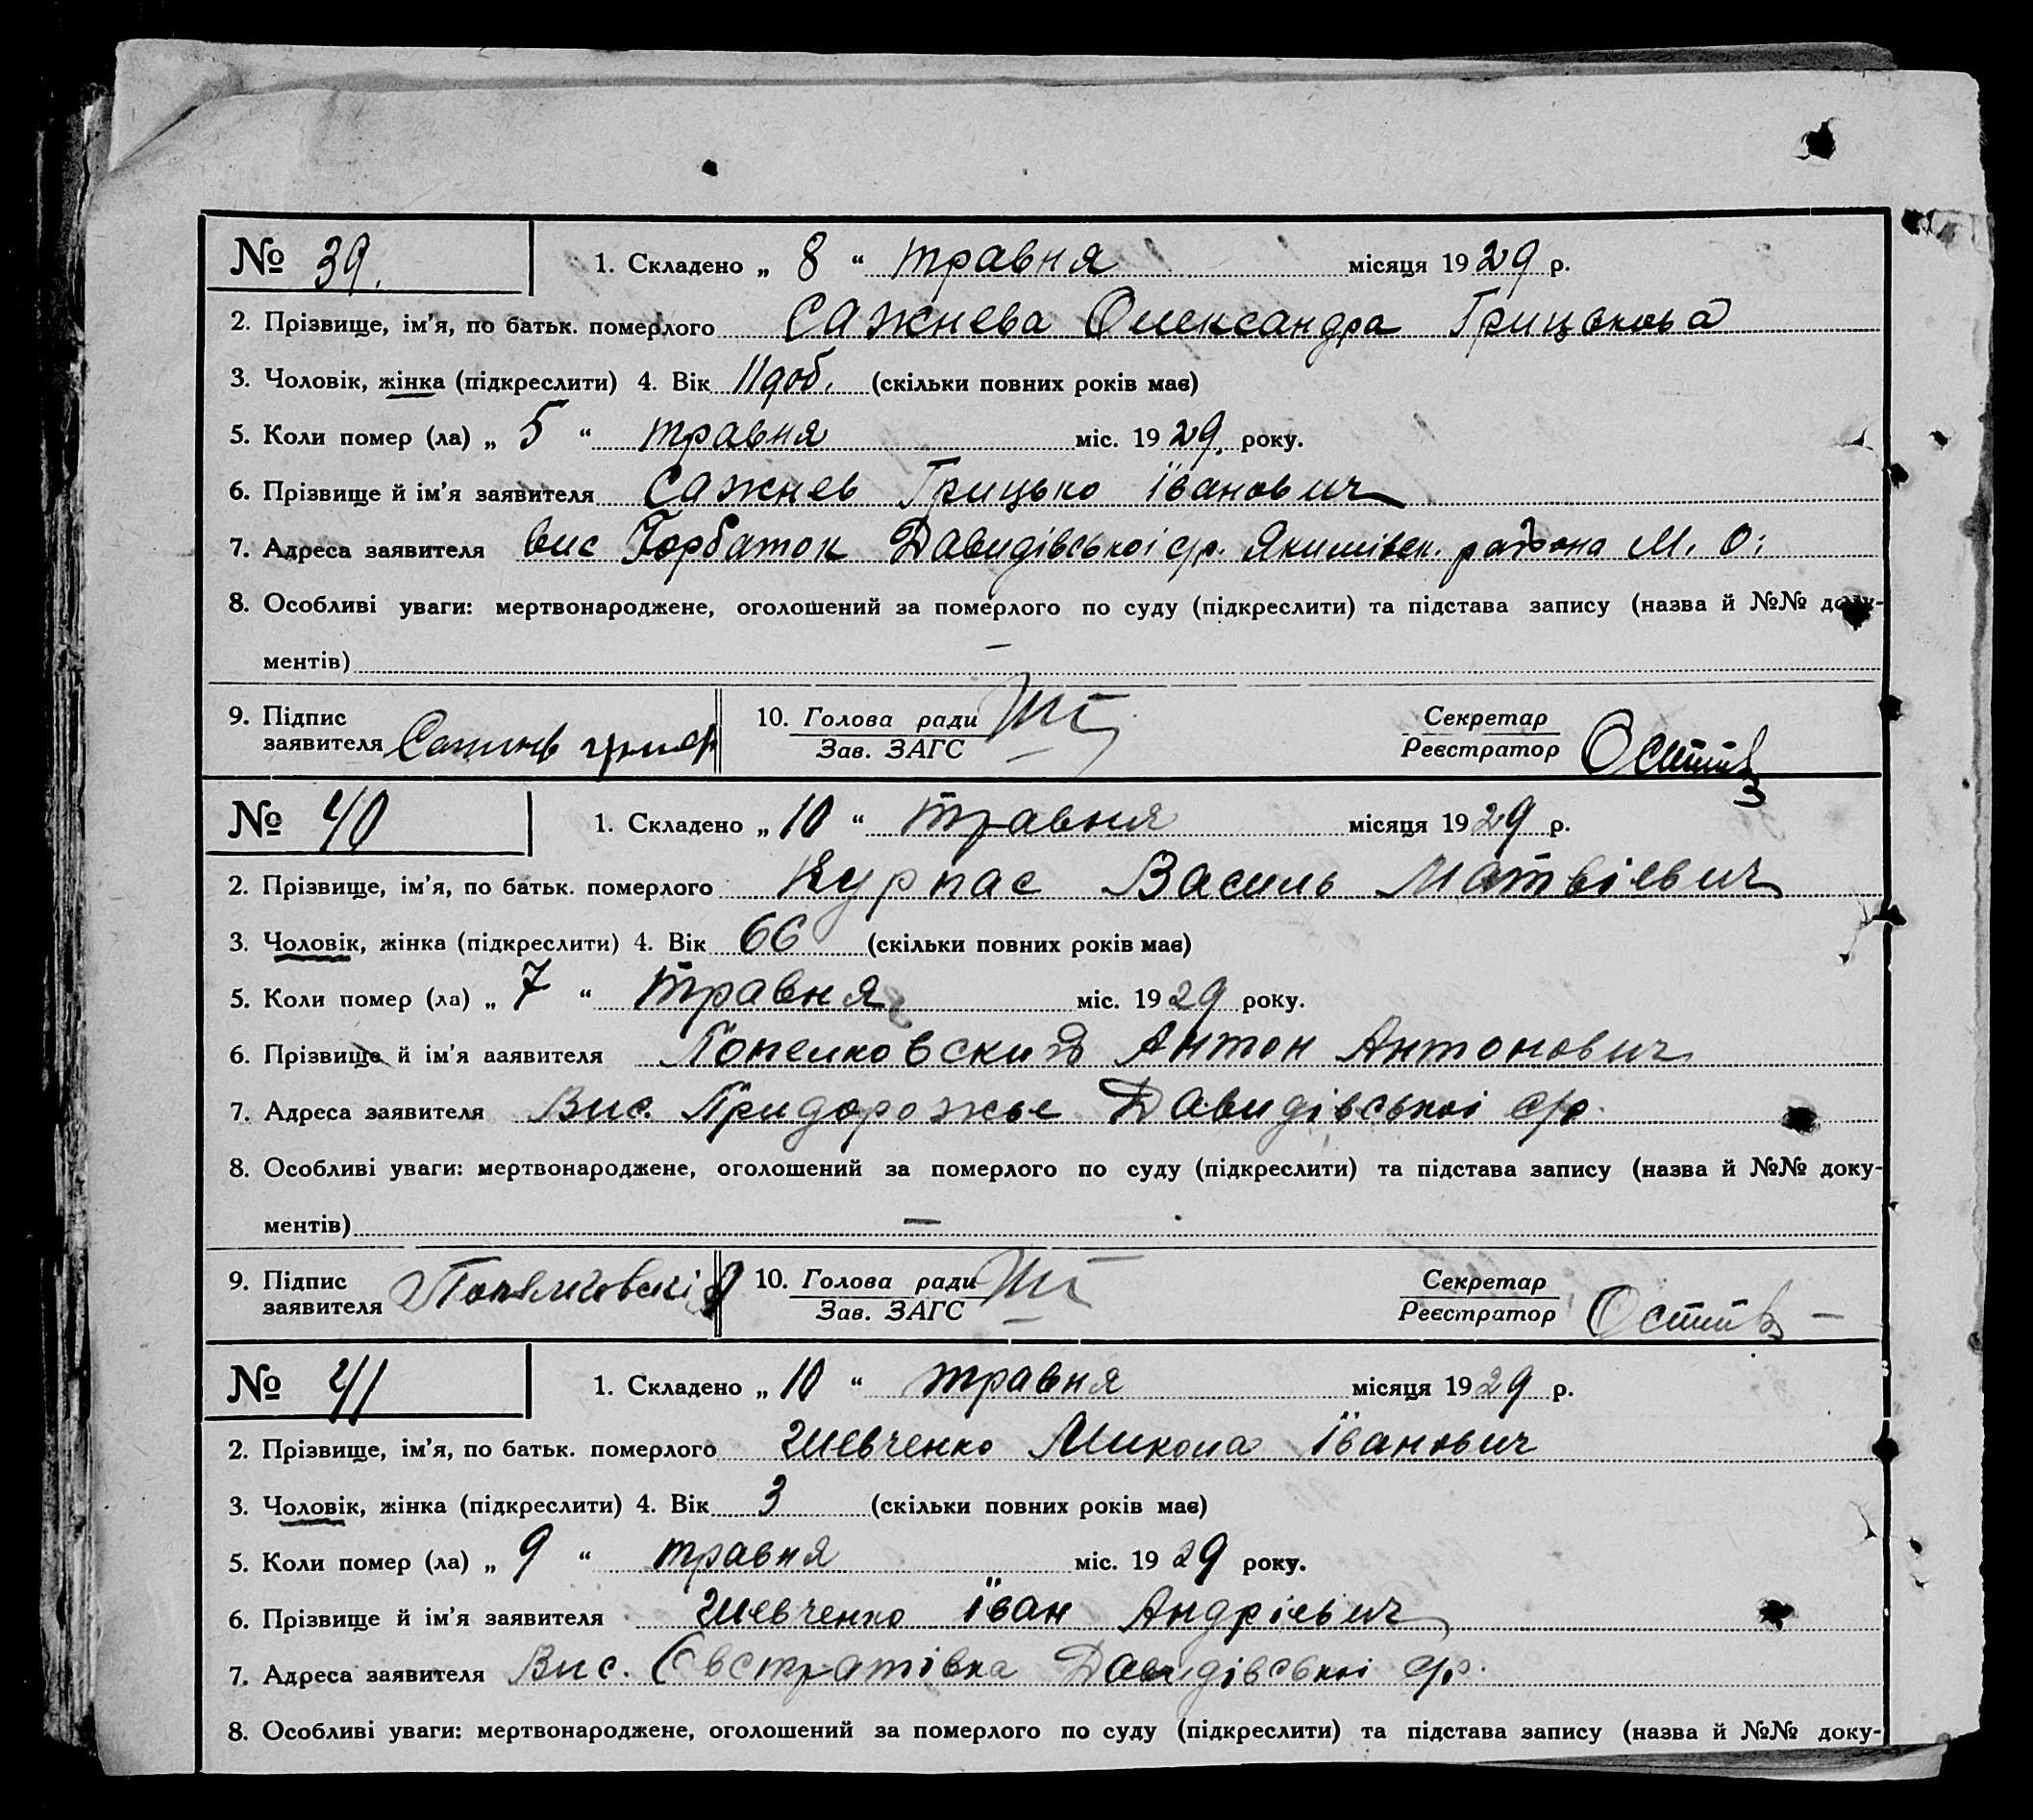 № 39. 1. Складено „ 8 “ травня місяця 1929 р.
2. Прізвище, ім’я, по батьк. померлого Сажнева Олександра Грицькова
3. Чоловік, жінка (підкреслити) 4. Вік 11 доб. (скільки повних років має)
5. Коли помер (ла) „ 5 “ травня міс. 1929 року.
6. Прізвище й ім’я заявителя Сажнев Грицько Іванович
7. Адреса заявителя Вис Горбаток Давидівської с/р. Якимівск. района М. О.
8. Особливі уваги: мертвонароджене, оголошений за померлого по суду (підкреслити) та підстава запису (назва й №№ доку-
ментів) —
9. Підпис 10. Голова ради Секретар
заявителя Сажнев Зав. ЗАГС Реєстратор
№ 40 1. Складено „ 10 “ травня місяця 1929 р.
2. Прізвище, ім’я, по батьк. померлого Курпас Василь Матвієвич
3. Чоловік, жінка (підкреслити) 4. Вік 66 (скільки повних років має)
5. Коли помер (ла) „ 7 “ травня міс. 1929 року.
6. Прізвище й ім’я ааявителя Попелковский Антон Антонович
7. Адреса заявителя Вис. Придорожье Давидівської с/р.
8. Особливі уваги: мертвонароджене, оголошений за померлого по суду (підкреслити) та підстава запису (назва й №№ доку-
ментів) —
9. Підпис 10. Голова ради Секретар
заявителя Зав. ЗАГС Реєстратор
№ 41 1. Складено „ 10 “ травня місяця 1929 р.
2. Прізвище, ім’я, по батьк. померлого Шевченко Микола Іванович
3. Чоловік, жінка (підкреслити) 4. Вік 3 (скільки повних років має)
5. Коли помер (ла) „ 9 “ травня міс. 1929 року.
6. Прізвище й ім’я заявителя Шевченко Іван Андрієвич
7. Адреса заявителя Вис. Євстратівка Давидівської с/р.
8. Особливі уваги: мертвонароджене, оголошений за померлого по суду (підкреслити) та підстава запису (назва й №№ доку-